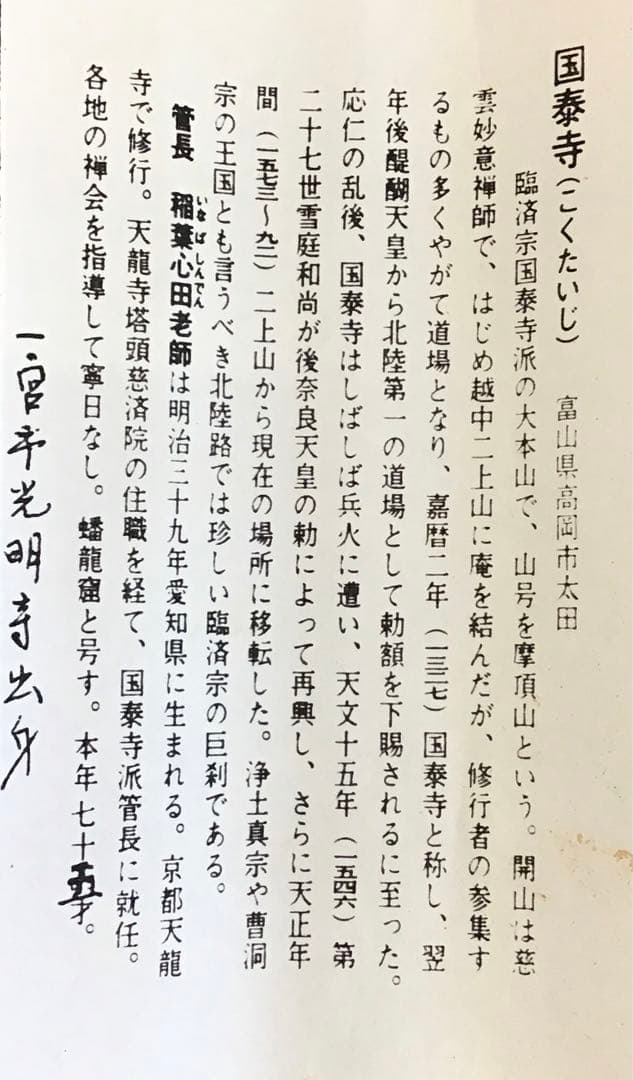 国泰寺（こくたいじ）　富山県高岡市太田
臨済宗国泰寺派の大本山で、山号を摩頂山という。開山は慈
雲妙意禅師で、はじめ越中二上山に庵を結んだが、修行者の参集す
るもの多くやがて道場となり、嘉暦二年（一三二七）国泰寺と称し、翌
年後醍醐天皇から北陸第一の道場として勅額を下賜されるに至った。
応仁の乱後、国泰寺はしばしば兵火に遭い、天文十五年（一五四六）第
二十七世雪庭和尚が後奈良天皇の勅によって再興し、さらに天正年
間（一五七三～九二）二上山から現在の場所に移転した。浄土真宗や曹洞
宗の王国とも言うべき北陸路では珍しい臨済宗の巨刹である。
管長　稲葉心田老師は明治三十九年愛知県に生まれる。京都天龍
いなばしんでん
寺で修行。天龍寺塔頭慈済院の住職を経て、国泰寺派管長に就任。
各地の禅会を指導して寧日なし。蟠龍窟と号す。本年七十五才。
一宮市光明寺出身